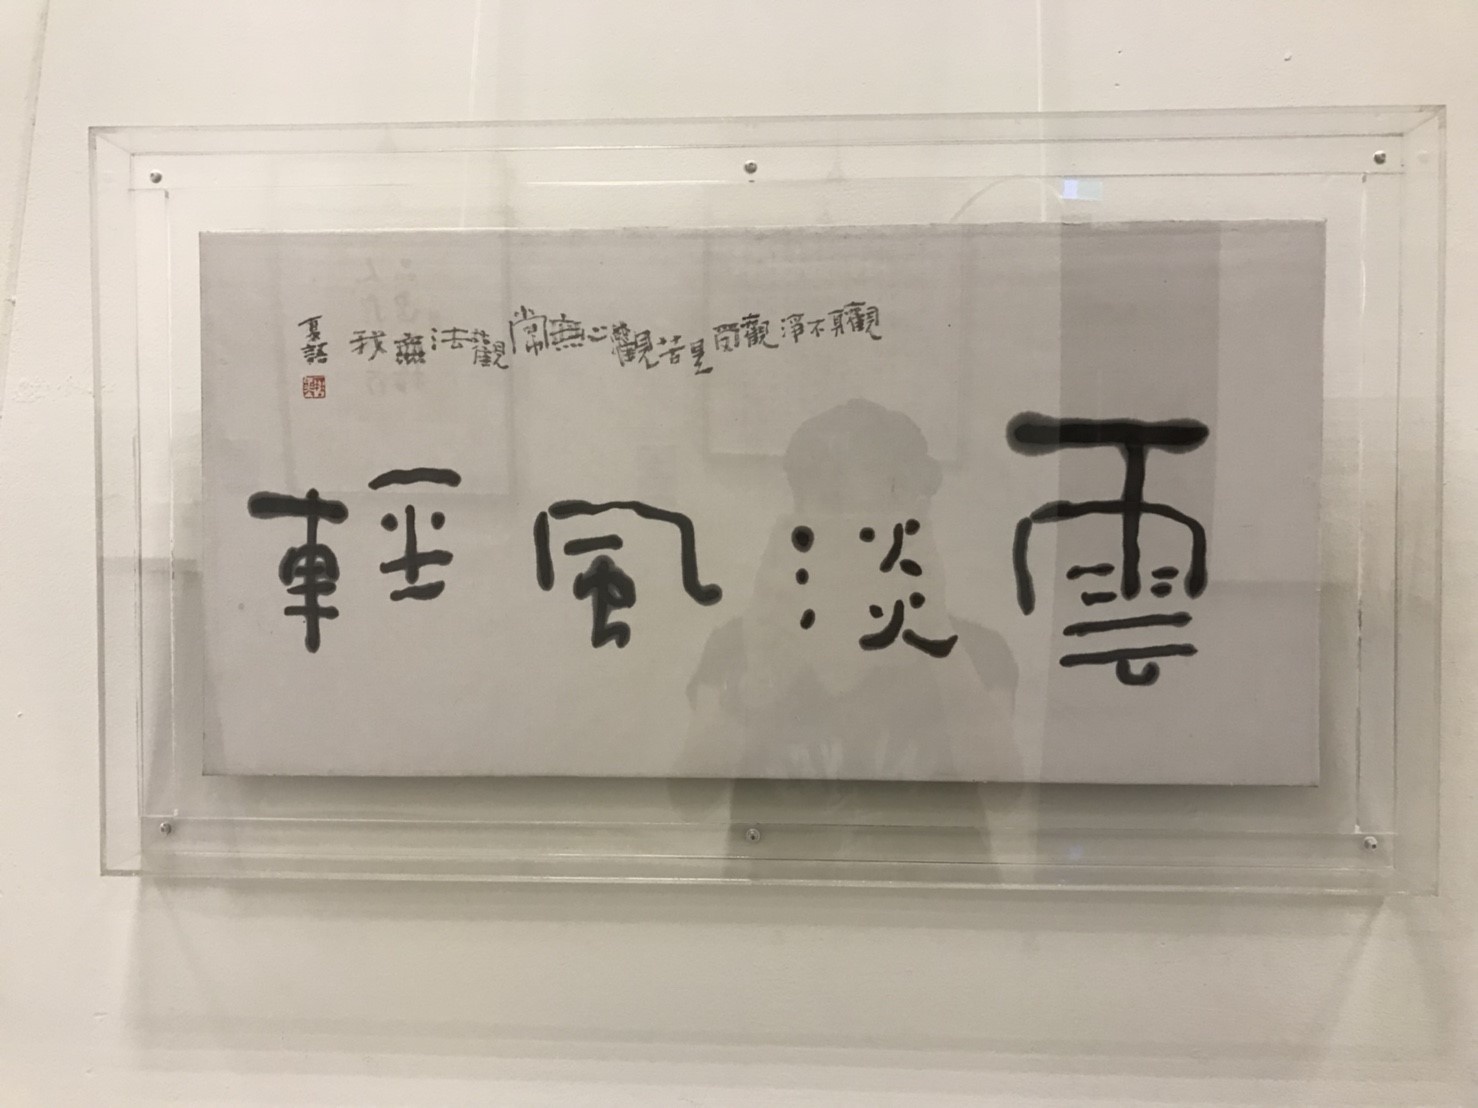 雲淡風輕
觀身不淨觀受是苦觀心無常觀法無我
夏語